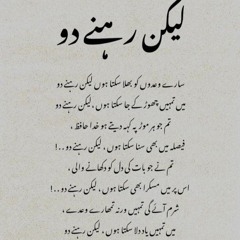 لیکن رہنے دو
سارے وعدوں کو بھلا سکتا ہوں لیکن رہنے دو
میں تمہیں چھوڑ کے جا سکتا ہوں، لیکن رہنے دو
تم جو ہر موڑ پہ کہہ دیتے ہو خدا حافظ،
فیصلہ میں بھی سنا سکتا ہوں، لیکن رہنے دو ..!
تم نے جو بات کی دل کو دکھانے والی،
اس پر میں مسکرا بھی سکتا ہوں، لیکن رہنے دو ..!
شرم آئے گی تمہیں ورنہ تمہارے وعدے،
میں تمہیں یاد دلا سکتا ہوں، لیکن رہنے دو